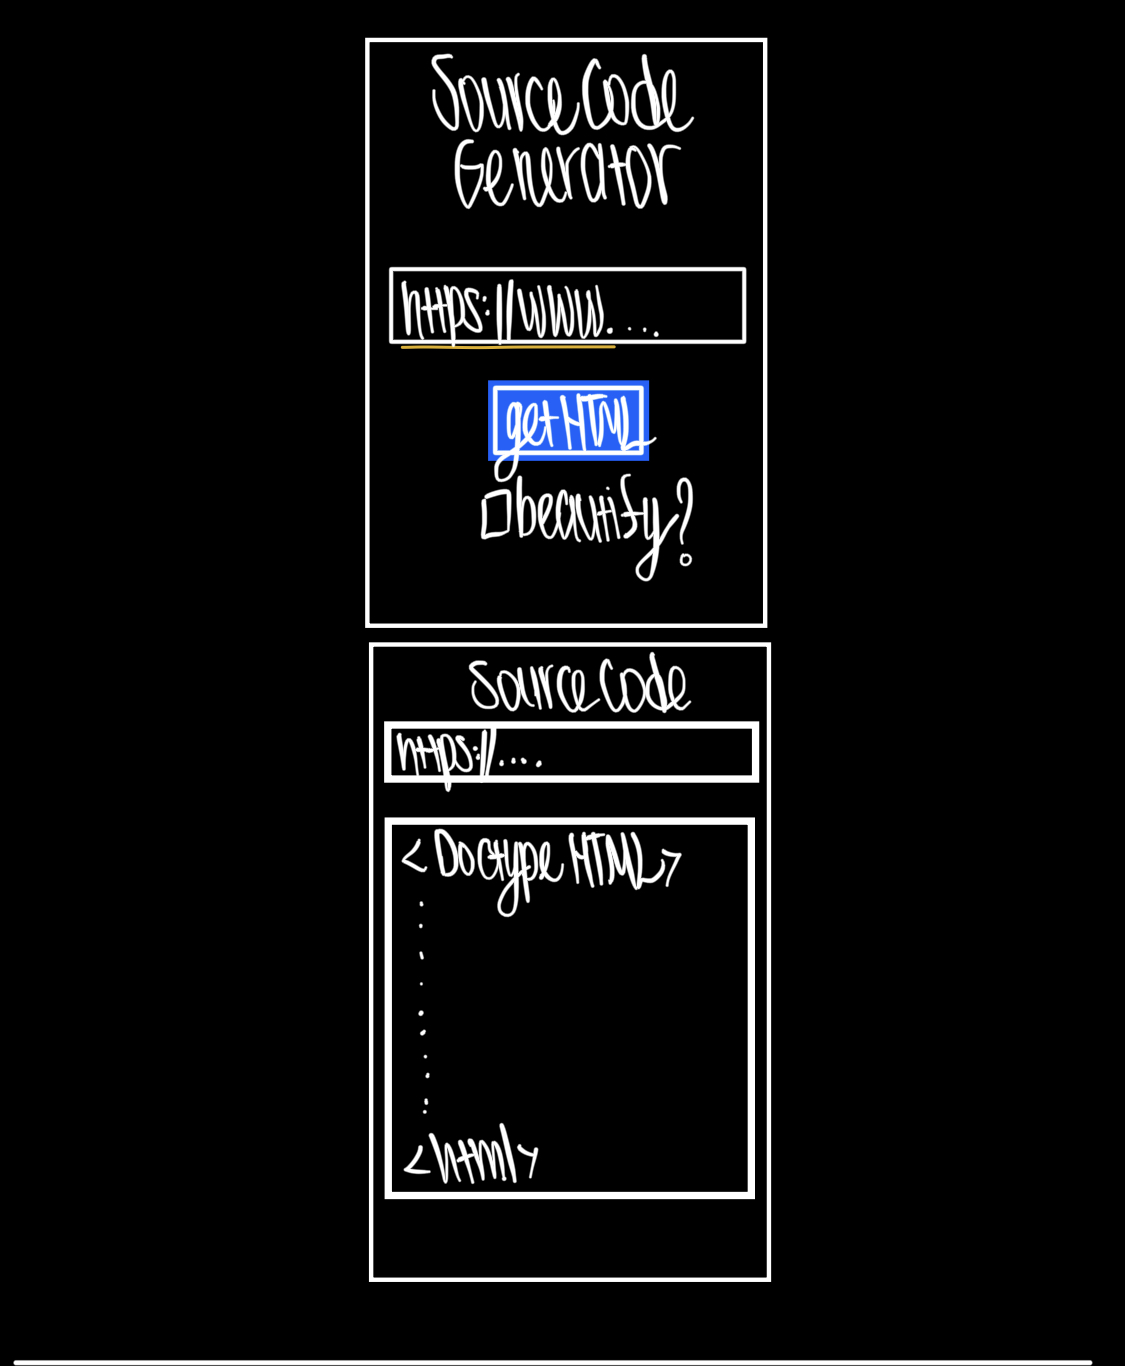 Source Code
Generator
https://www. ...
get HTML
beautify?
Source Code
https://....
<Doctype HTML>
<html>